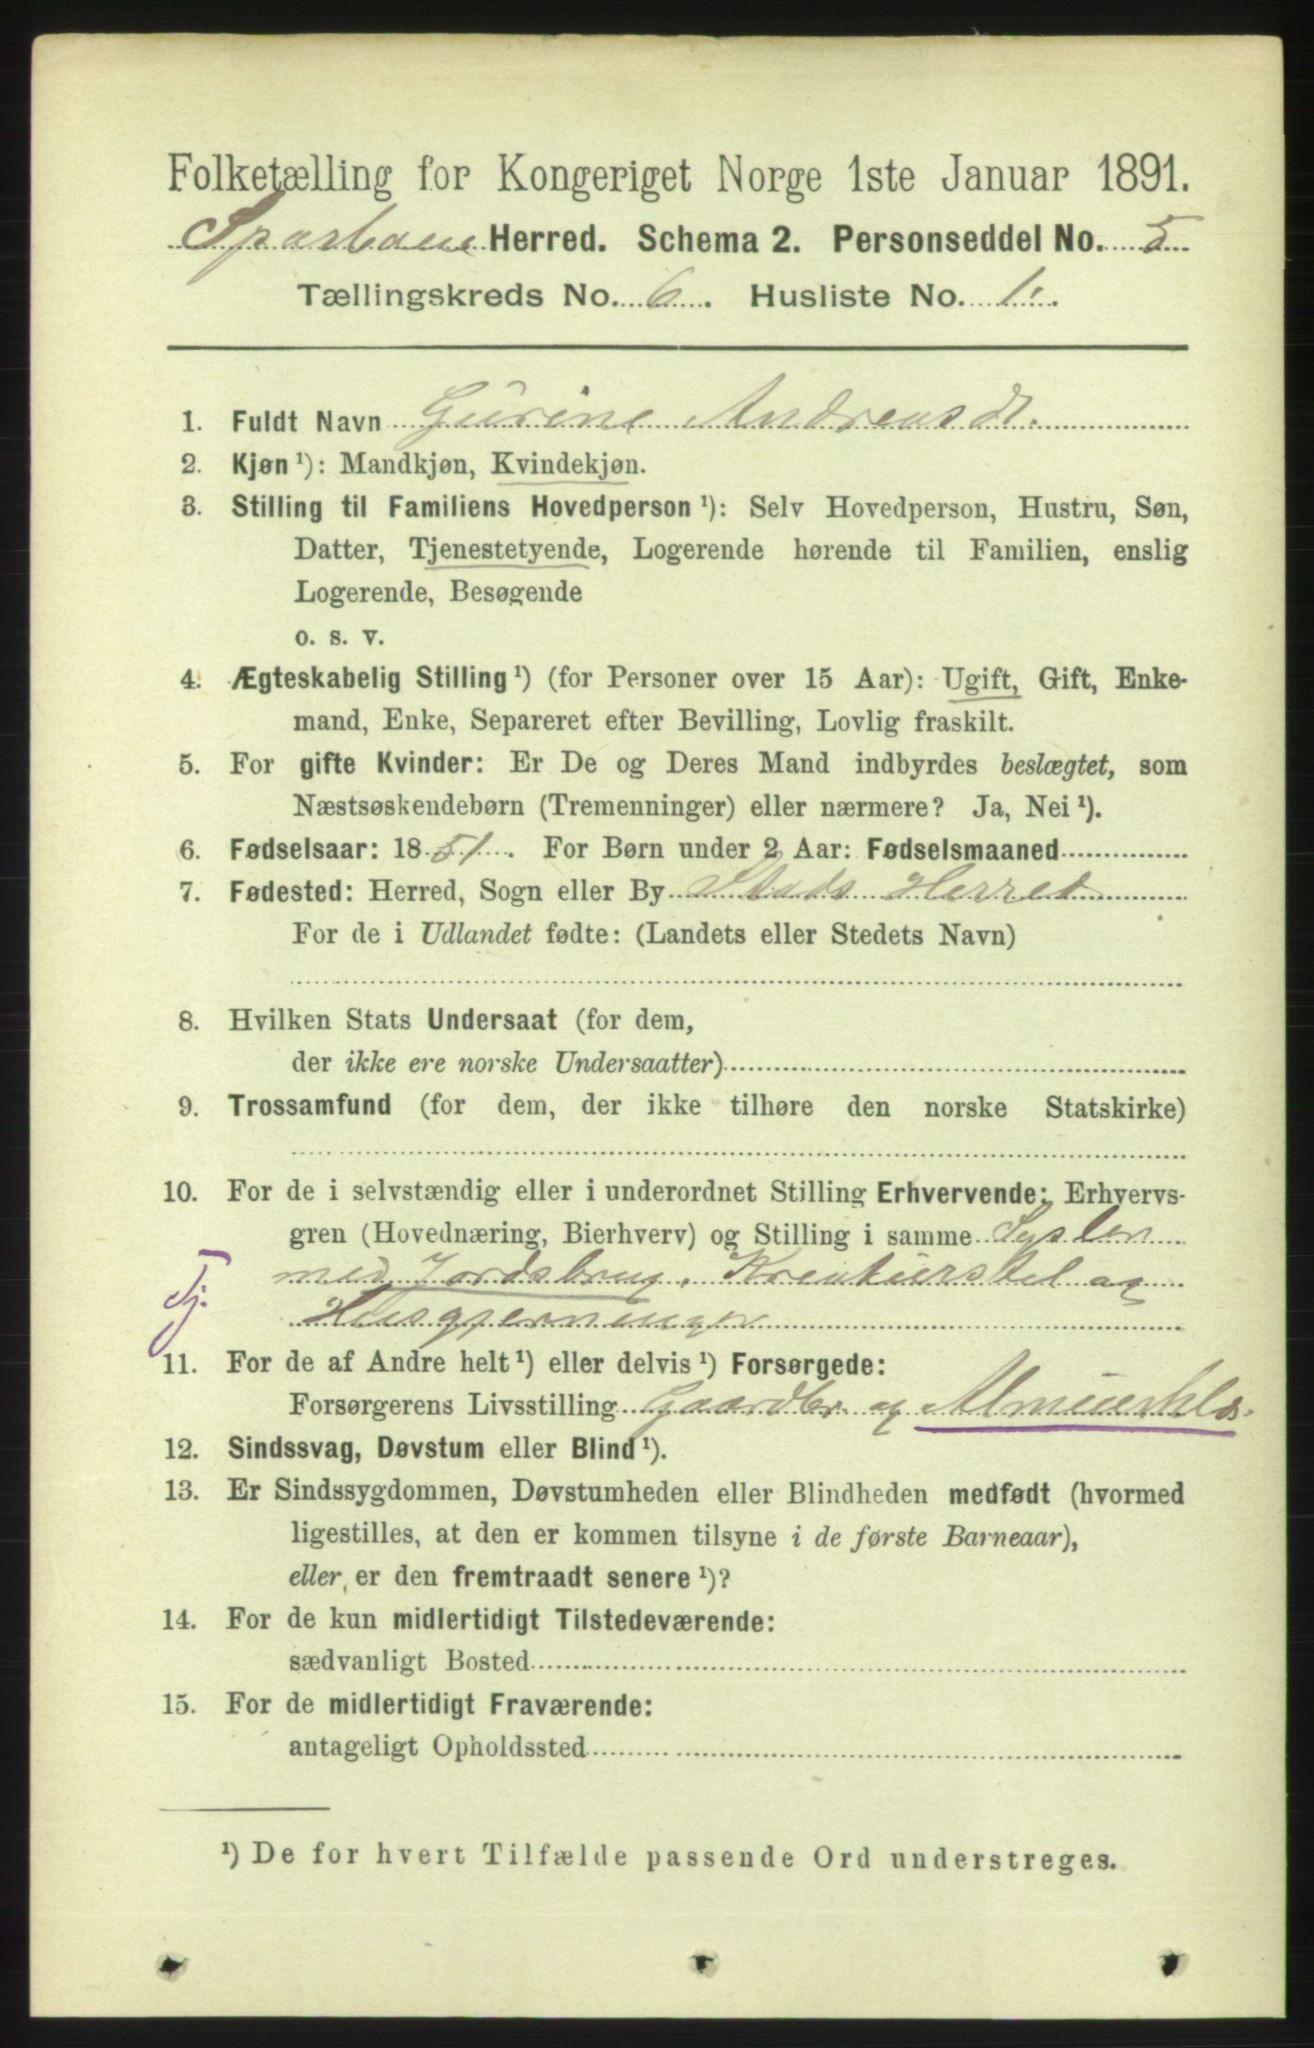 Folketælling for Kongeriget Norge 1ste Januar 1891.
Sparbuen Herred. Schema 2. Personseddel No. 5
Tællingskreds No. 6. Husliste No. 1.
1. Fuldt Navn Gurine Andreasdt.
2. Kjøn ¹): Mandkjøn, Kvindekjøn.
3. Stilling til Familiens Hovedperson ¹): Selv Hovedperson, Hustru, Søn,
Datter, Tjenestetyende, Logerende hørende til Familien, enslig
Logerende, Besøgende
o. s. v.
4. Ægteskabelig Stilling ¹) (for Personer over 15 Aar): Ugift, Gift, Enke-
mand, Enke, Separeret efter Bevilling, Lovlig fraskilt.
5. For gifte Kvinder: Er De og Deres Mand indbyrdes beslægtet, som
Næstsøskendebørn (Tremenninger) eller nærmere? Ja, Nei ¹).
6. Fødselsaar: 1851. For Børn under 2 Aar: Fødselsmaaned
7. Fødested: Herred, Sogn eller By Stods Herred
For de i Udlandet fødte: (Landets eller Stedets Navn)
8. Hvilken Stats Undersaat (for dem,
der ikke ere norske Undersaatter)
9. Trossamfund (for dem, der ikke tilhøre den norske Statskirke)
10. For de i selvstændig eller i underordnet Stilling Erhvervende: Erhvervs-
gren (Hovednæring, Bierhverv) og Stilling i samme Sysler
med Jordsbrug, Kreaturstel og
Tj. Husgjerninger
11. For de af Andre helt ¹) eller delvis ¹) Forsørgede:
Forsørgerens Livsstilling Gaardbr. og
12. Sindssvag, Døvstum eller Blind ¹).
13. Er Sindssygdommen, Døvstumheden eller Blindheden medfødt (hvormed
ligestilles, at den er kommen tilsyne i de første Barneaar),
eller er den fremtraadt senere ¹)?
14. For de kun midlertidigt Tilstedeværende:
sædvanligt Bosted
15. For de midlertidigt Fraværende:
antageligt Opholdssted
¹) De for hvert Tilfælde passende Ord understreges.